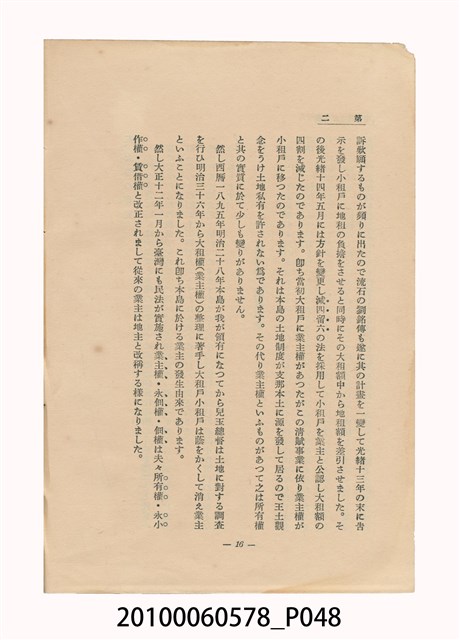 第二
訴歎願するものが頻りに出たので流石の劉銘傳も遂に其の計畫を一變して光緒十三年の末に告
示を發し小租戶に地租の負擔をさせると同時にその大租額中から地租額を差引させました。そ
の後光緒十四年五月には方針を變更し減四留六の法を採用して小租戶を業主と公認し大租額の
四割を減じたのであります。卽ち當初大租戶に業主權があつたがこの淸賦事業に依り業主權が
小租戶に移つたのであります。それは本島の土地制度が支那本土に源を發して居るので王土觀
念をうけ土地私有を許されない爲であります。その代り業主權といふものがあつて之は所有權
と其の實質に於て少しも變りがありません。
然し西曆一八九五年明治二十八年本島が我が領有になつてから兒玉總督は土地に對する調査
を行ひ明治三十六年から大租權(業主權)の整理に著手し大租戶小租戶は蔭をかくして消え業主
といふことになりました。これ卽ち本島に於ける業主の發生由來であります。
然し大正十二年一月から臺灣にも民法が實施され業主權・永佃權・佃權は夫々所有權・永小
作權・賃借權と改正されまして從來の業主は地主と改稱する樣になりました。
— 16 —
20100060578_P048